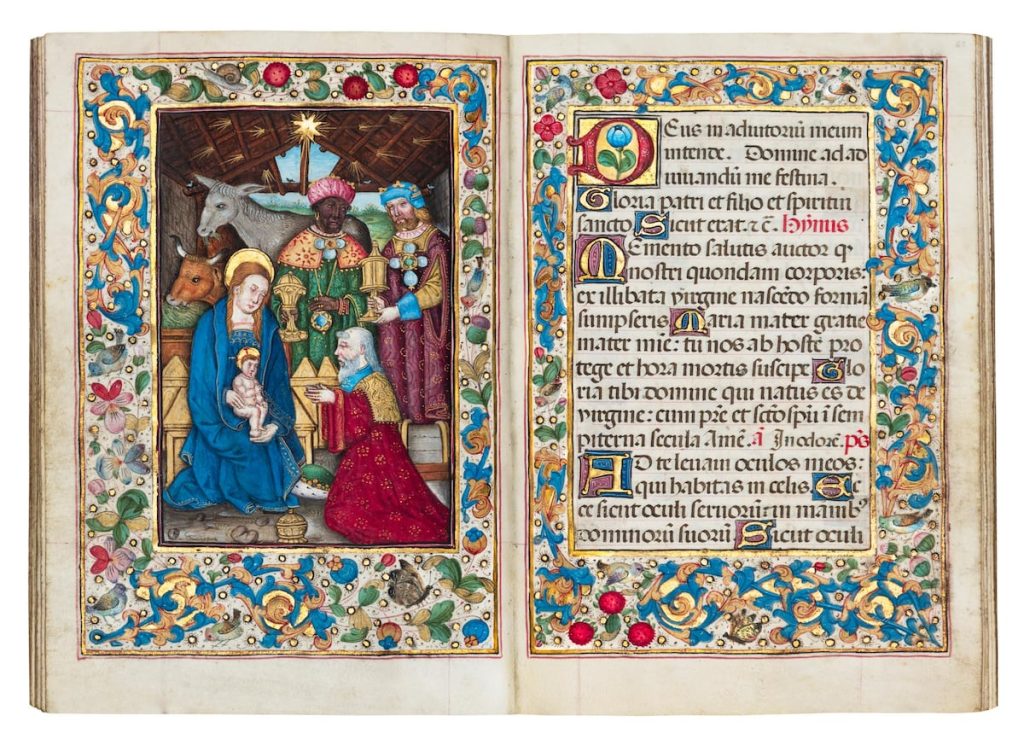 Deus in adiutoriū meum
intende. Domine ad ad
iuuandū me festina.
Gloria patri et filio et spiritui
sancto Sicut erat. ⁊ c̄. hȳnus
Memento salutis auctor qͥ
nostri quondam corporis:
ex illibata virgine nascēdo formā
sumpseris Maria mater gratie
mater mīe: tu nos ab hoste pro
tege et hora mortis suscipe Glo
ria tibi domine qui natus es de
virgine: cum pr̄e et sc̄o spū ī sem
piterna secula Amē. ā In odorē. p̄s
Ad te leuaui oculos meos:
qui habitas in celis. Ec
ce sicut oculi seruorū: in manibꝰ
dominorū suorū Sicut oculi